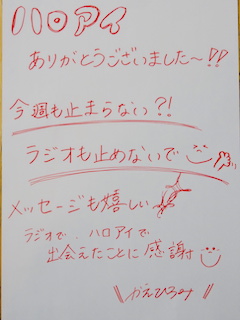 ハロアイ
ありがとうございました〜!!
今週も止まらない?!
ラジオも止めないで
メッセージも嬉しい
ラジオで、ハロアイで
出会えたことに感謝
\\かえひろみ//